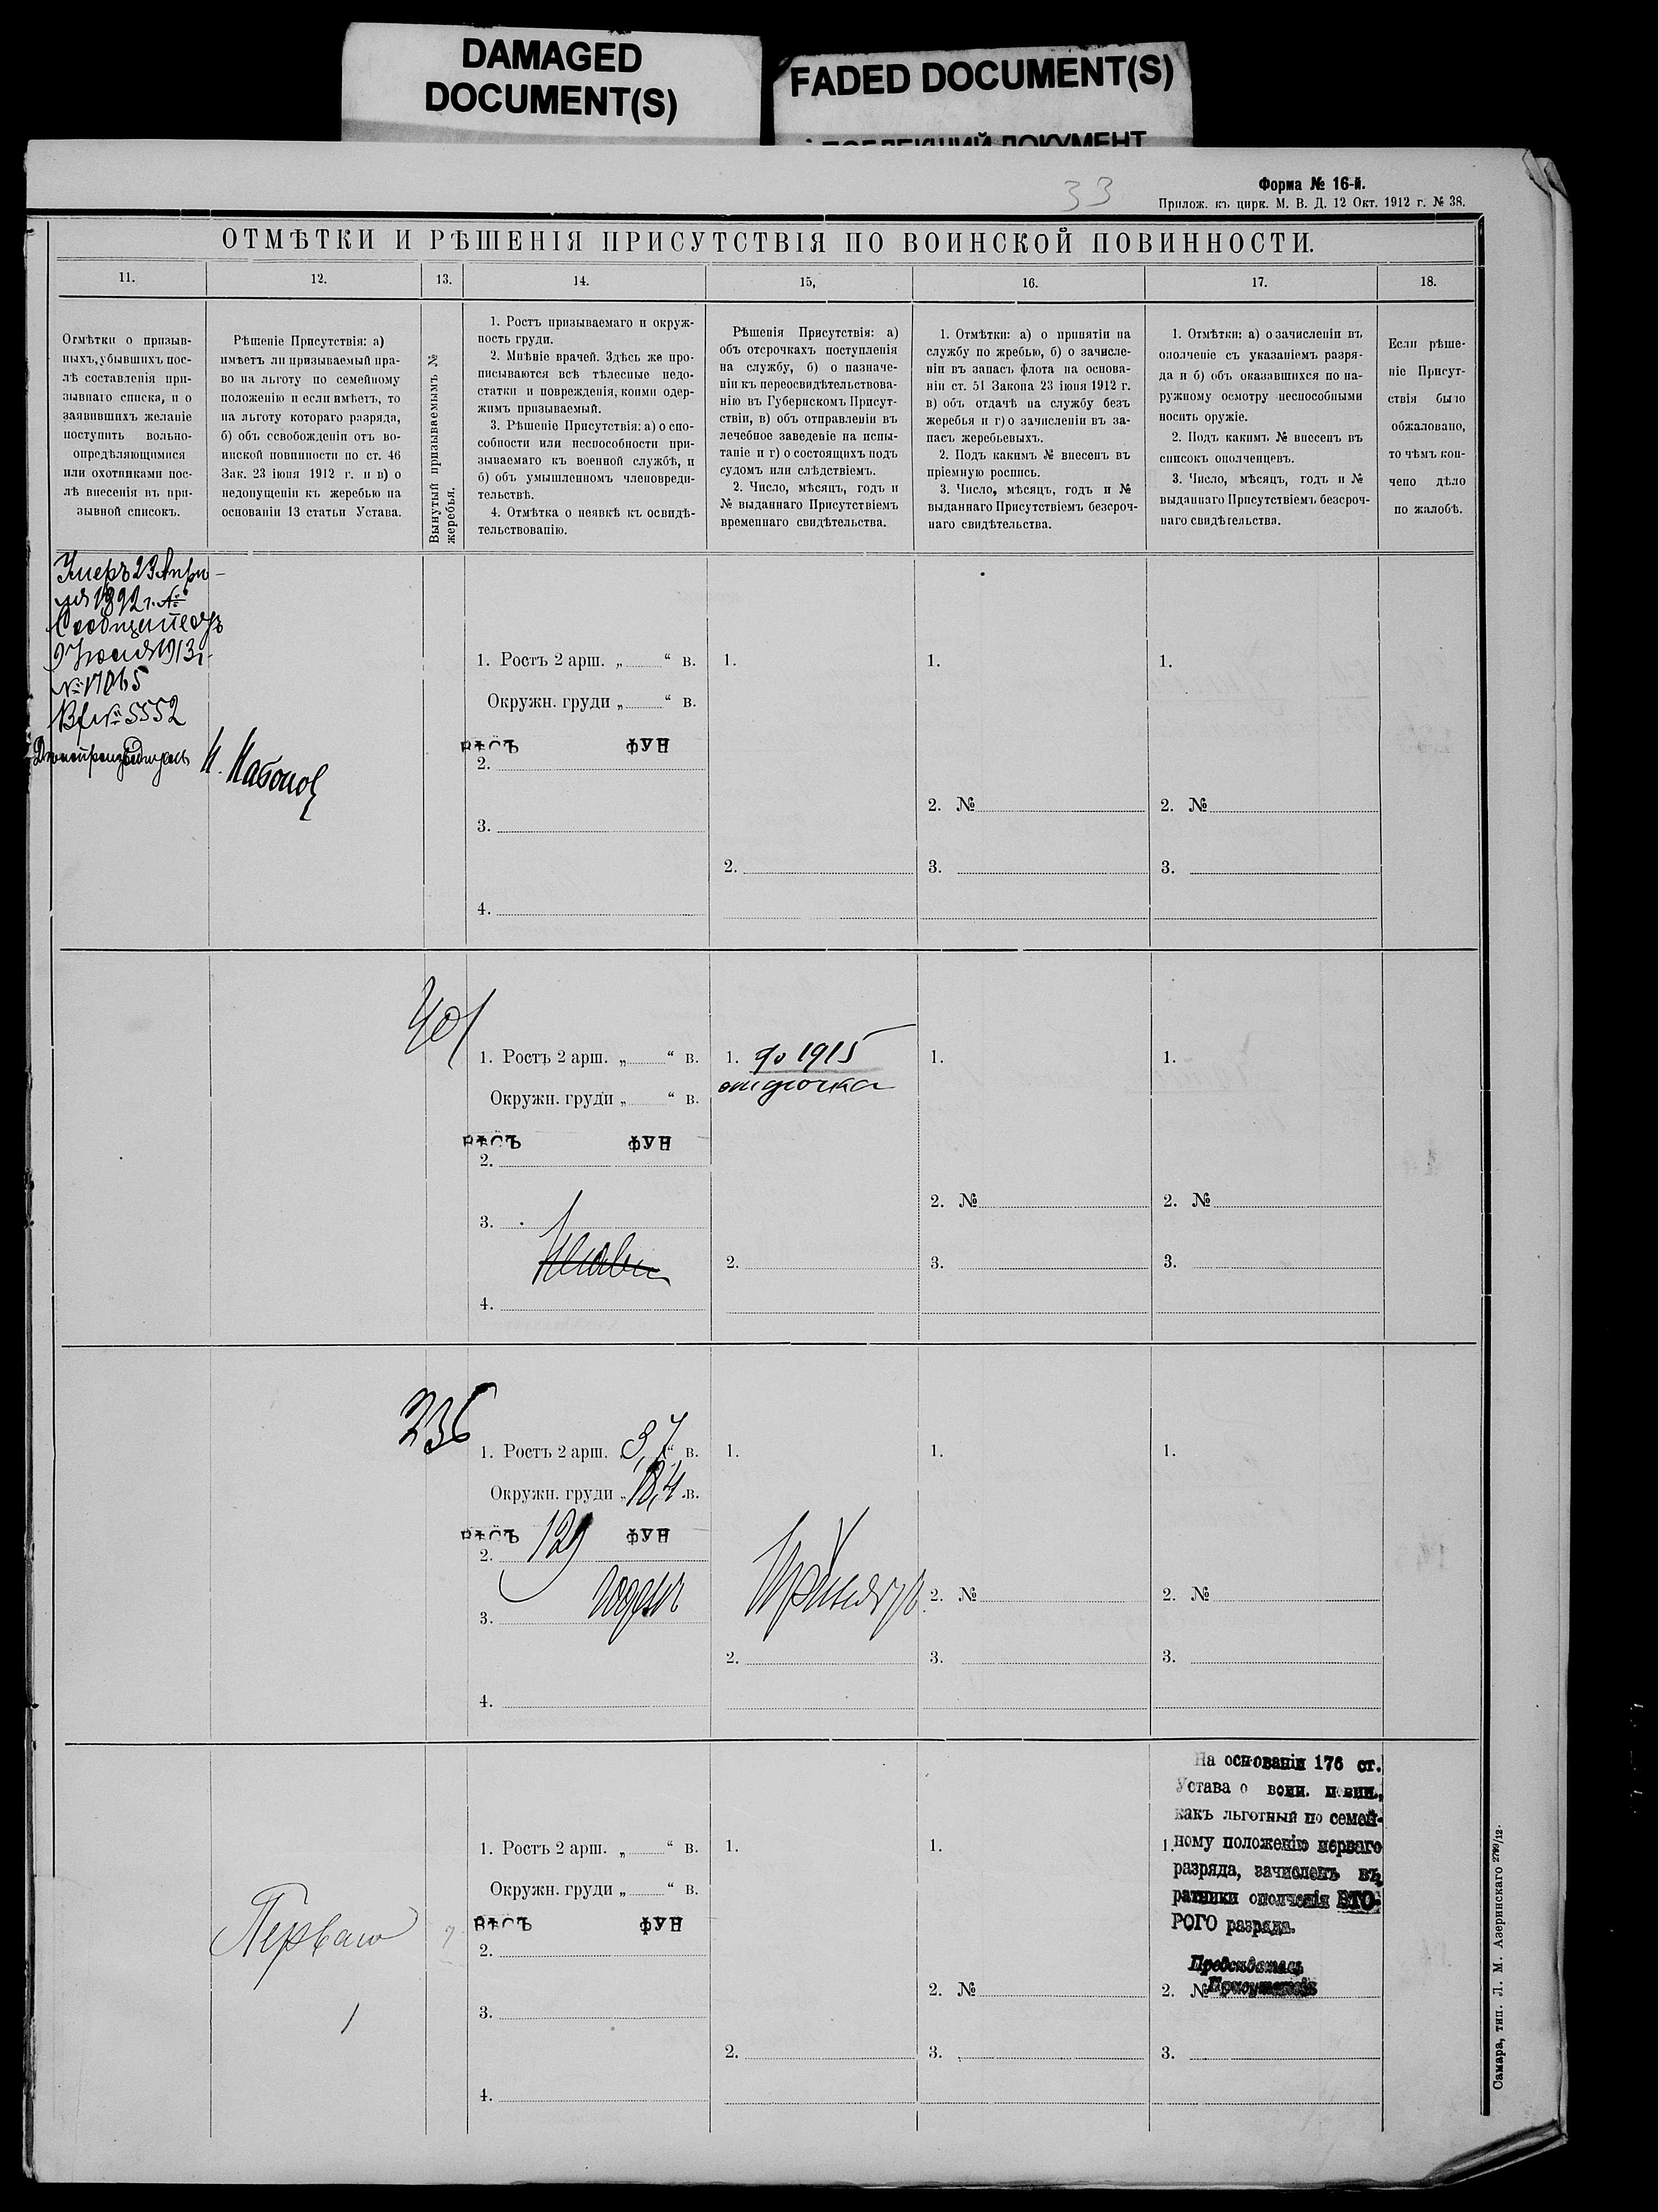 DAMAGED
DOCUMENT(S)
FADED DOCUMENT(S)
ПОБЛЕКШИЙ ДОКУМЕНТ
33
Форма № 16-й.
Прилож. къ цирк. М. В. Д. 12 Окт. 1912 г. № 38.
ОТМѢТКИ И РѢШЕНІЯ ПРИСУТСТВІЯ ПО ВОИНСКОЙ ПОВИННОСТИ.
11.
12.
13.
14.
15,
16.
17.
18.
Отмѣтки о призыв-
ныхъ, убывшихъ пос-
лѣ составленія при-
зывнаго списка, и о
заявившихъ желаніе
поступить вольно-
опредѣляющимися
или охотниками пос-
лѣ внесенія въ при-
зывной списокъ.
Рѣшеніе Присутствія: а)
имѣетъ ли призываемый пра-
во на льготу по семейному
положенію и если имѣетъ, то
на льготу котораго разряда,
б) объ освобожденіи отъ во-
инской повинности по ст. 46
Зак. 23 іюня 1912 г. и в) о
недопущеніи къ жеребью на
основаніи 13 статьи Устава.
Вынутый призываемымъ №
жеребья.
1. Ростъ призываемаго и окруж-
ность груди.
2. Мнѣніе врачей. Здѣсь же про-
писываются всѣ тѣлесные недо-
статки и поврежденія, коими одер-
жимъ призываемый.
3. Рѣшеніе Присутствія: а) о спо-
собности или неспособности при-
зываемаго къ военной службѣ, и
б) объ умышленномъ членовреди-
тельствѣ.
4. Отмѣтка о неявкѣ къ освидѣ-
тельствованію.
Рѣшенія Присутствія: а)
объ отсрочкахъ поступленія
на службу, б) о назначе-
ніи къ переосвидѣтельствова-
нію въ Губернскомъ Присут-
ствіи, в) объ отправленіи въ
лечебное заведеніе на испы-
таніе и г) о состоящихъ подъ
судомъ или слѣдствіемъ.
2. Число, мѣсяцъ, годъ и
№ выданнаго Присутствіемъ
временнаго свидѣтельства.
1. Отмѣтки: а) о принятіи на
службу по жребью, б) о зачисле-
ніи въ запасъ флота на основа-
ніи ст. 51 Закона 23 іюня 1912 г.
в) объ отдачѣ на службу безъ
жеребья и г) о зачисленіи въ за-
пасъ жеребьевыхъ.
2. Подъ какимъ № внесенъ въ
пріемную роспись.
3. Число, мѣсяцъ, годъ и №
выданнаго Присутствіемъ безсроч-
наго свидѣтельства.
1. Отмѣтки: а) о зачисленіи въ
ополченіе съ указаніемъ разря-
да и б) объ оказавшихся по на-
ружному осмотру неспособными
носить оружіе.
2. Подъ какимъ № внесенъ въ
списокъ ополченцевъ.
3. Число, мѣсяцъ, годъ и №
выданнаго Присутствіемъ безсроч-
наго свидѣтельства.
Если рѣше-
ніе Присут-
ствія было
обжаловано,
то чѣмъ кон-
чено дѣло
по жалобѣ.
Умеръ 23 Апрѣ-
ля 1892 г. №
9 Іюня 1913 г.
№ 17065
Вх № 5552
Дѣлопроизводитель
1. Ростъ 2 арш. „ “ в.
Окружн. груди „ “ в.
вѣсъ фун
2.
3.
4.
1.
2.
1.
2. №
3.
1.
2. №
3.
401
1. Ростъ 2 арш. „ “ в.
Окружн. груди „ “ в.
вѣсъ фун
2.
3.
4.
1. до 1915
отсрочка
2.
1.
2. №
3.
1.
2. №
3.
236
1. Ростъ 2 арш. 3,7 “ в.
Окружн. груди „ 18,4 в.
вѣсъ 129 фун
2.
годенъ
3.
4.
1.
Принятъ
2.
1.
2. №
3.
1.
2. №
3.
Перваго
1
1. Ростъ 2 арш. „ “ в.
Окружн. груди „ “ в.
вѣсъ фун
2.
3.
4.
1.
2.
1.
2. №
3.
На основаніи 176 ст.
Устава о воин. повин.
какъ льготный по семей-
1. ному положенію перваго
разряда, зачисленъ въ
ратники ополченія ВТО-
РОГО разряда.
Предсѣдатель
2. № Присутствія
3.
Самара, тип. Л. М. Азеринскаго